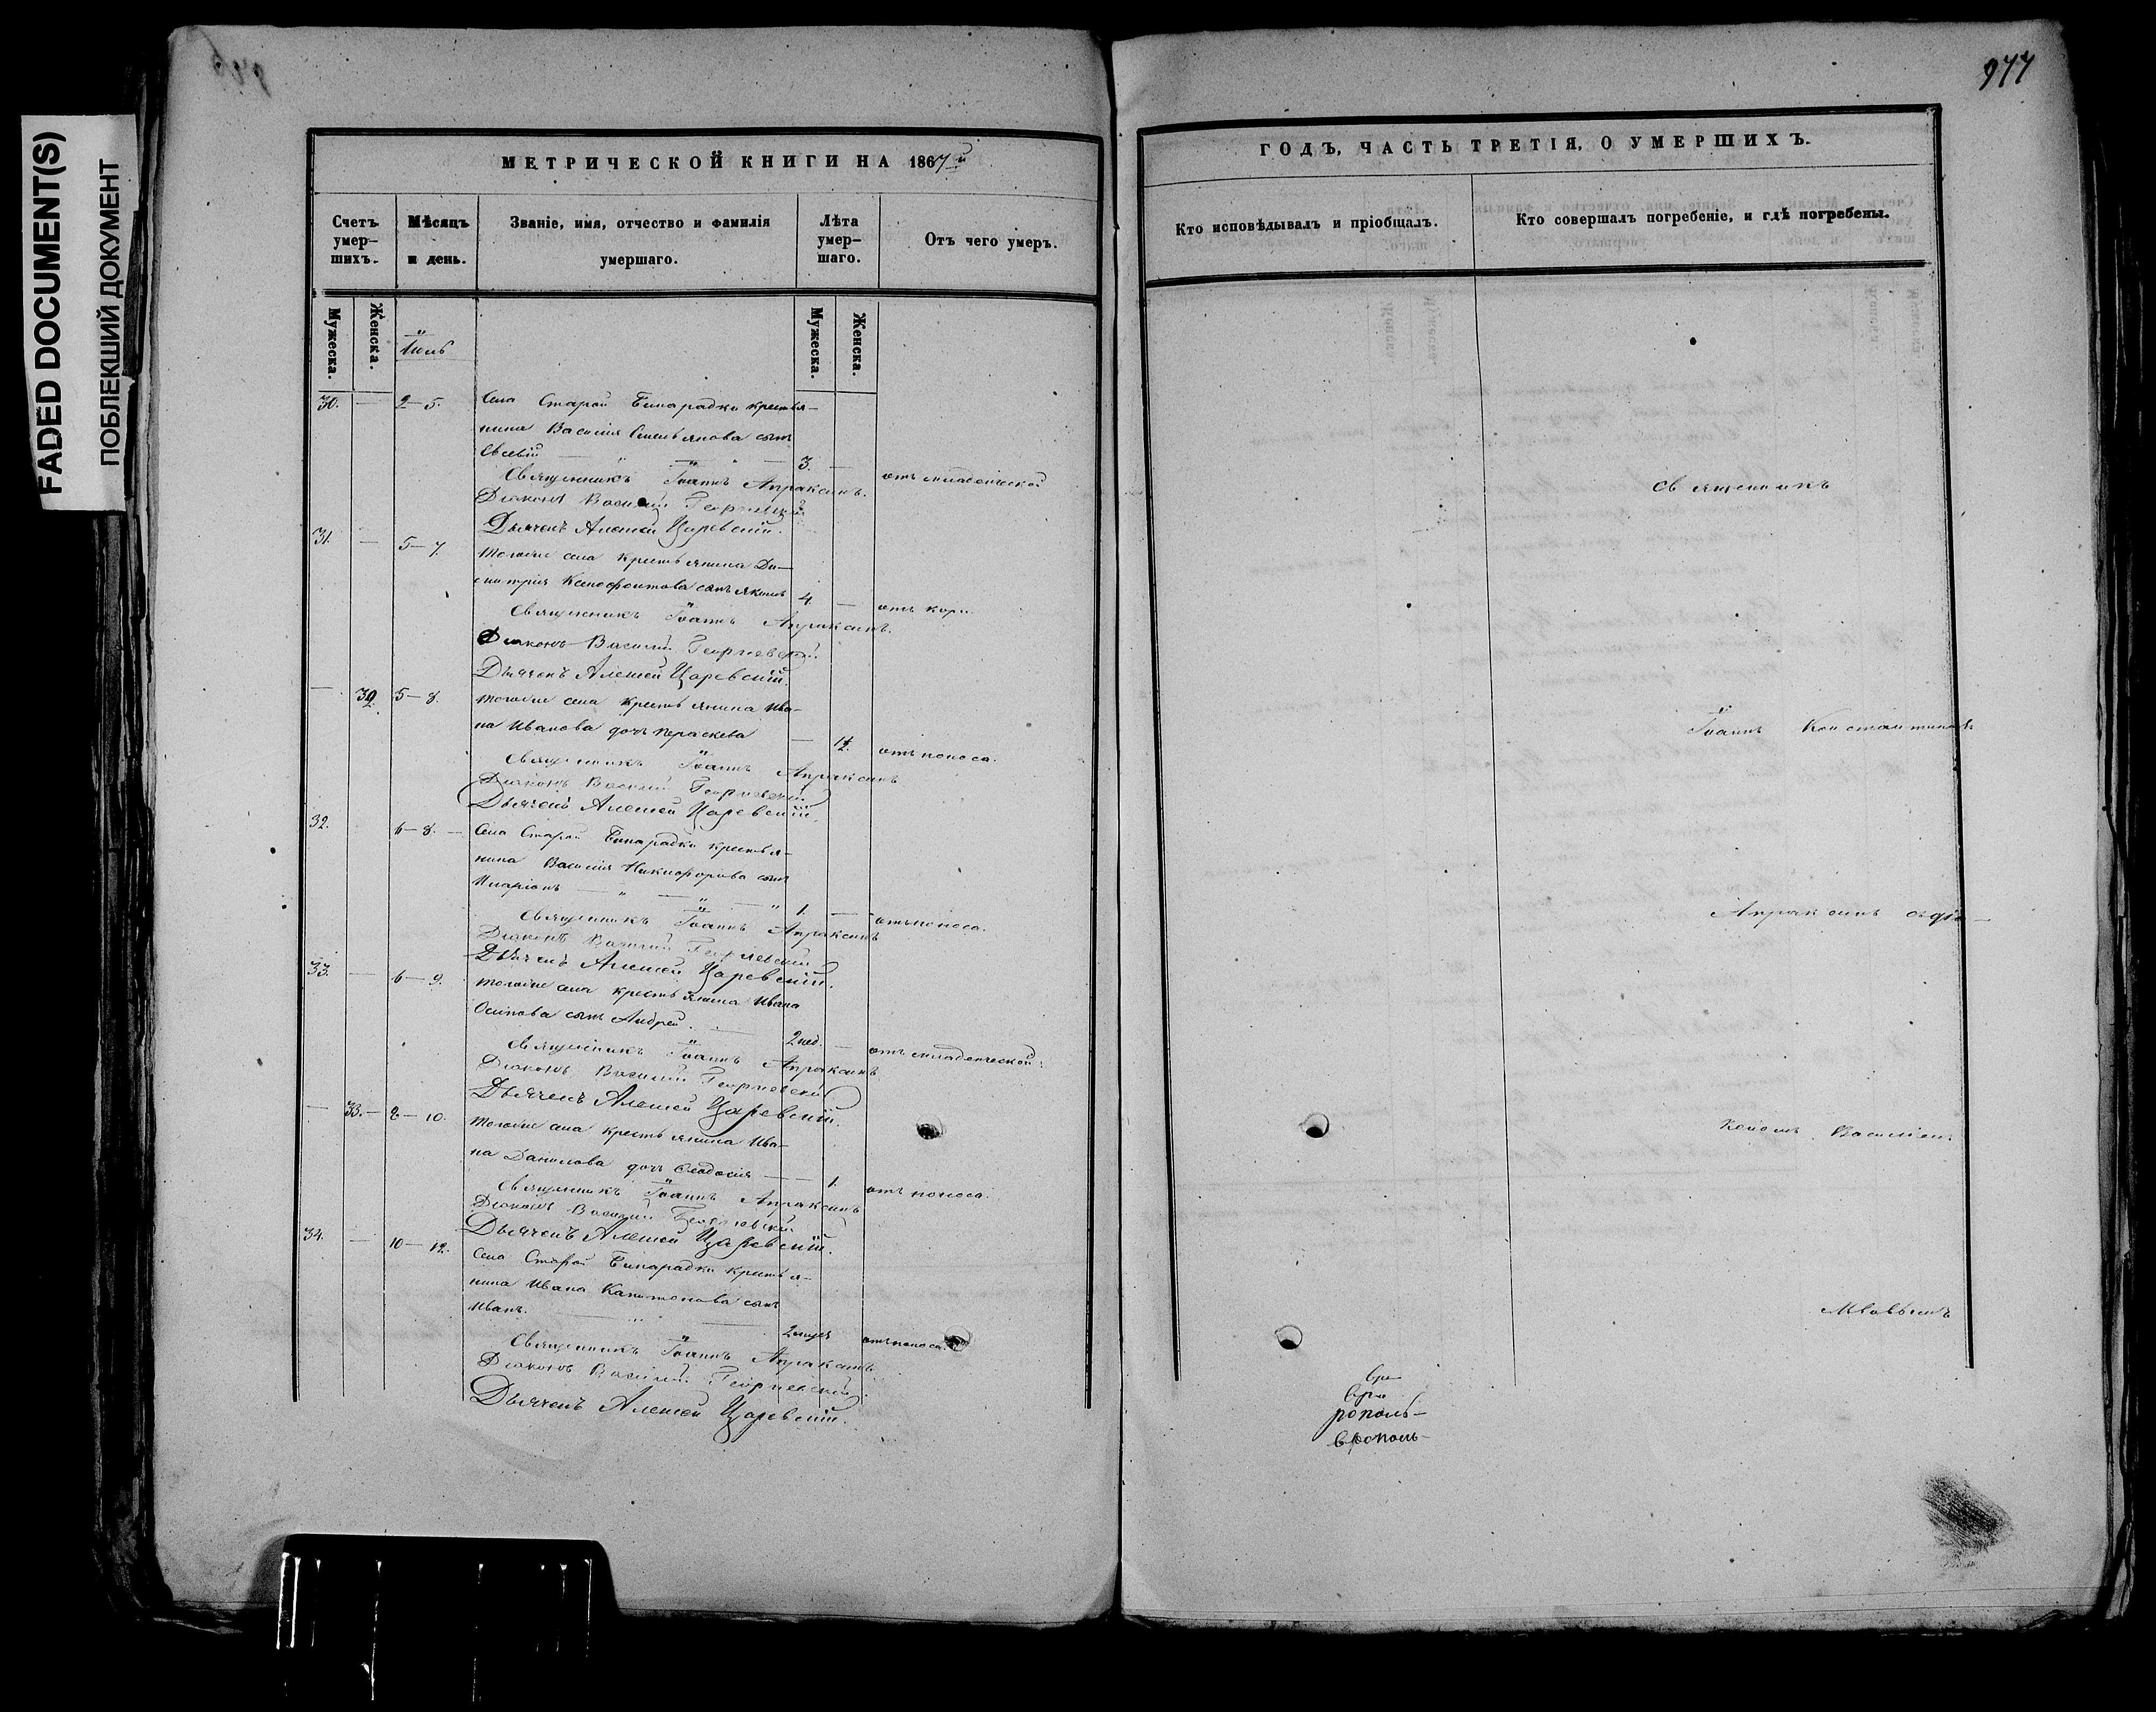 FADED DOCUMENT(S)
ПОБЛЕКШИЙ ДОКУМЕНТ
977
МЕТРИЧЕСКОЙ КНИГИ НА 1867й
ГОДЪ, ЧАСТЬ ТРЕТІЯ, О УМЕРШИХЪ.
Счетъ умер-
шихъ.
Мѣсяцъ
и день.
Званіе, имя, отчество и фамилія
умершаго.
Лѣта
умер-
шаго.
Отъ чего умеръ.
Кто исповѣдывалъ и пріобщалъ.
Кто совершалъ погребеніе, и гдѣ погребены.
Мужеска.
Женска.
Мужеска.
Женска.
Іюль
30. — 2–5. Села Старой Бинарадки крестья-
нина Василія Емельянова сынъ
3. —
Священникъ Іоаннъ Апраксинъ. отъ младенческой
Діаконъ Василій Георгіевскій
Дьячекъ Алексей Царевскій.
31. — 5–7. Тогоже села крестьянина Ди-
митрія Ксенофонтова сынъ Якимъ 4. — отъ кори.
Священникъ Іоаннъ Апраксинъ.
Діаконъ Василій Георгіевскій
Дьячекъ Алексей Царевскій.
— 32. 5–8. Тогоже села крестьянина Ива-
на Иванова дочь Параскева — отъ поноса.
Священникъ Іоаннъ Апраксинъ
Діаконъ Василій Георгіевскій
Дьячекъ Алексей Царевскій.
32. 6–8. — Села Старой Бинарадки крестья-
нина Василія Никифорова сынъ
Иларіонъ 1. — отъ поноса.
Священникъ Іоаннъ Апраксинъ
Діаконъ Василій Георгіевскій
Дьячекъ Алексей Царевскій.
33. — 6–9. Тогоже села крестьянина Ивана
Осипова сынъ Андрей. 2 нед. — отъ младенческой.
Священникъ Іоаннъ Апраксинъ
Діаконъ Василій Георгіевскій
Дьячекъ Алексей Царевскій.
— 33. — 8–10. Тогоже села крестьянина Ива-
на Данилова дочь Феодосія — 1. отъ поноса.
Священникъ Іоаннъ Апраксинъ
Діаконъ Василій Георгіевскій
Дьячекъ Алексей Царевскій.
34. — 10–12. Села Старой Бинарадки крестья-
нина Ивана Капитонова сынъ
Иванъ. отъ поноса.
Священникъ Іоаннъ Апраксинъ.
Діаконъ Василій Георгіевскій.
Дьячекъ Алексей Царевскій.
Священникъ
Іоаннъ Константиновъ
Апраксинъ съ діа-
кономъ Василіемъ